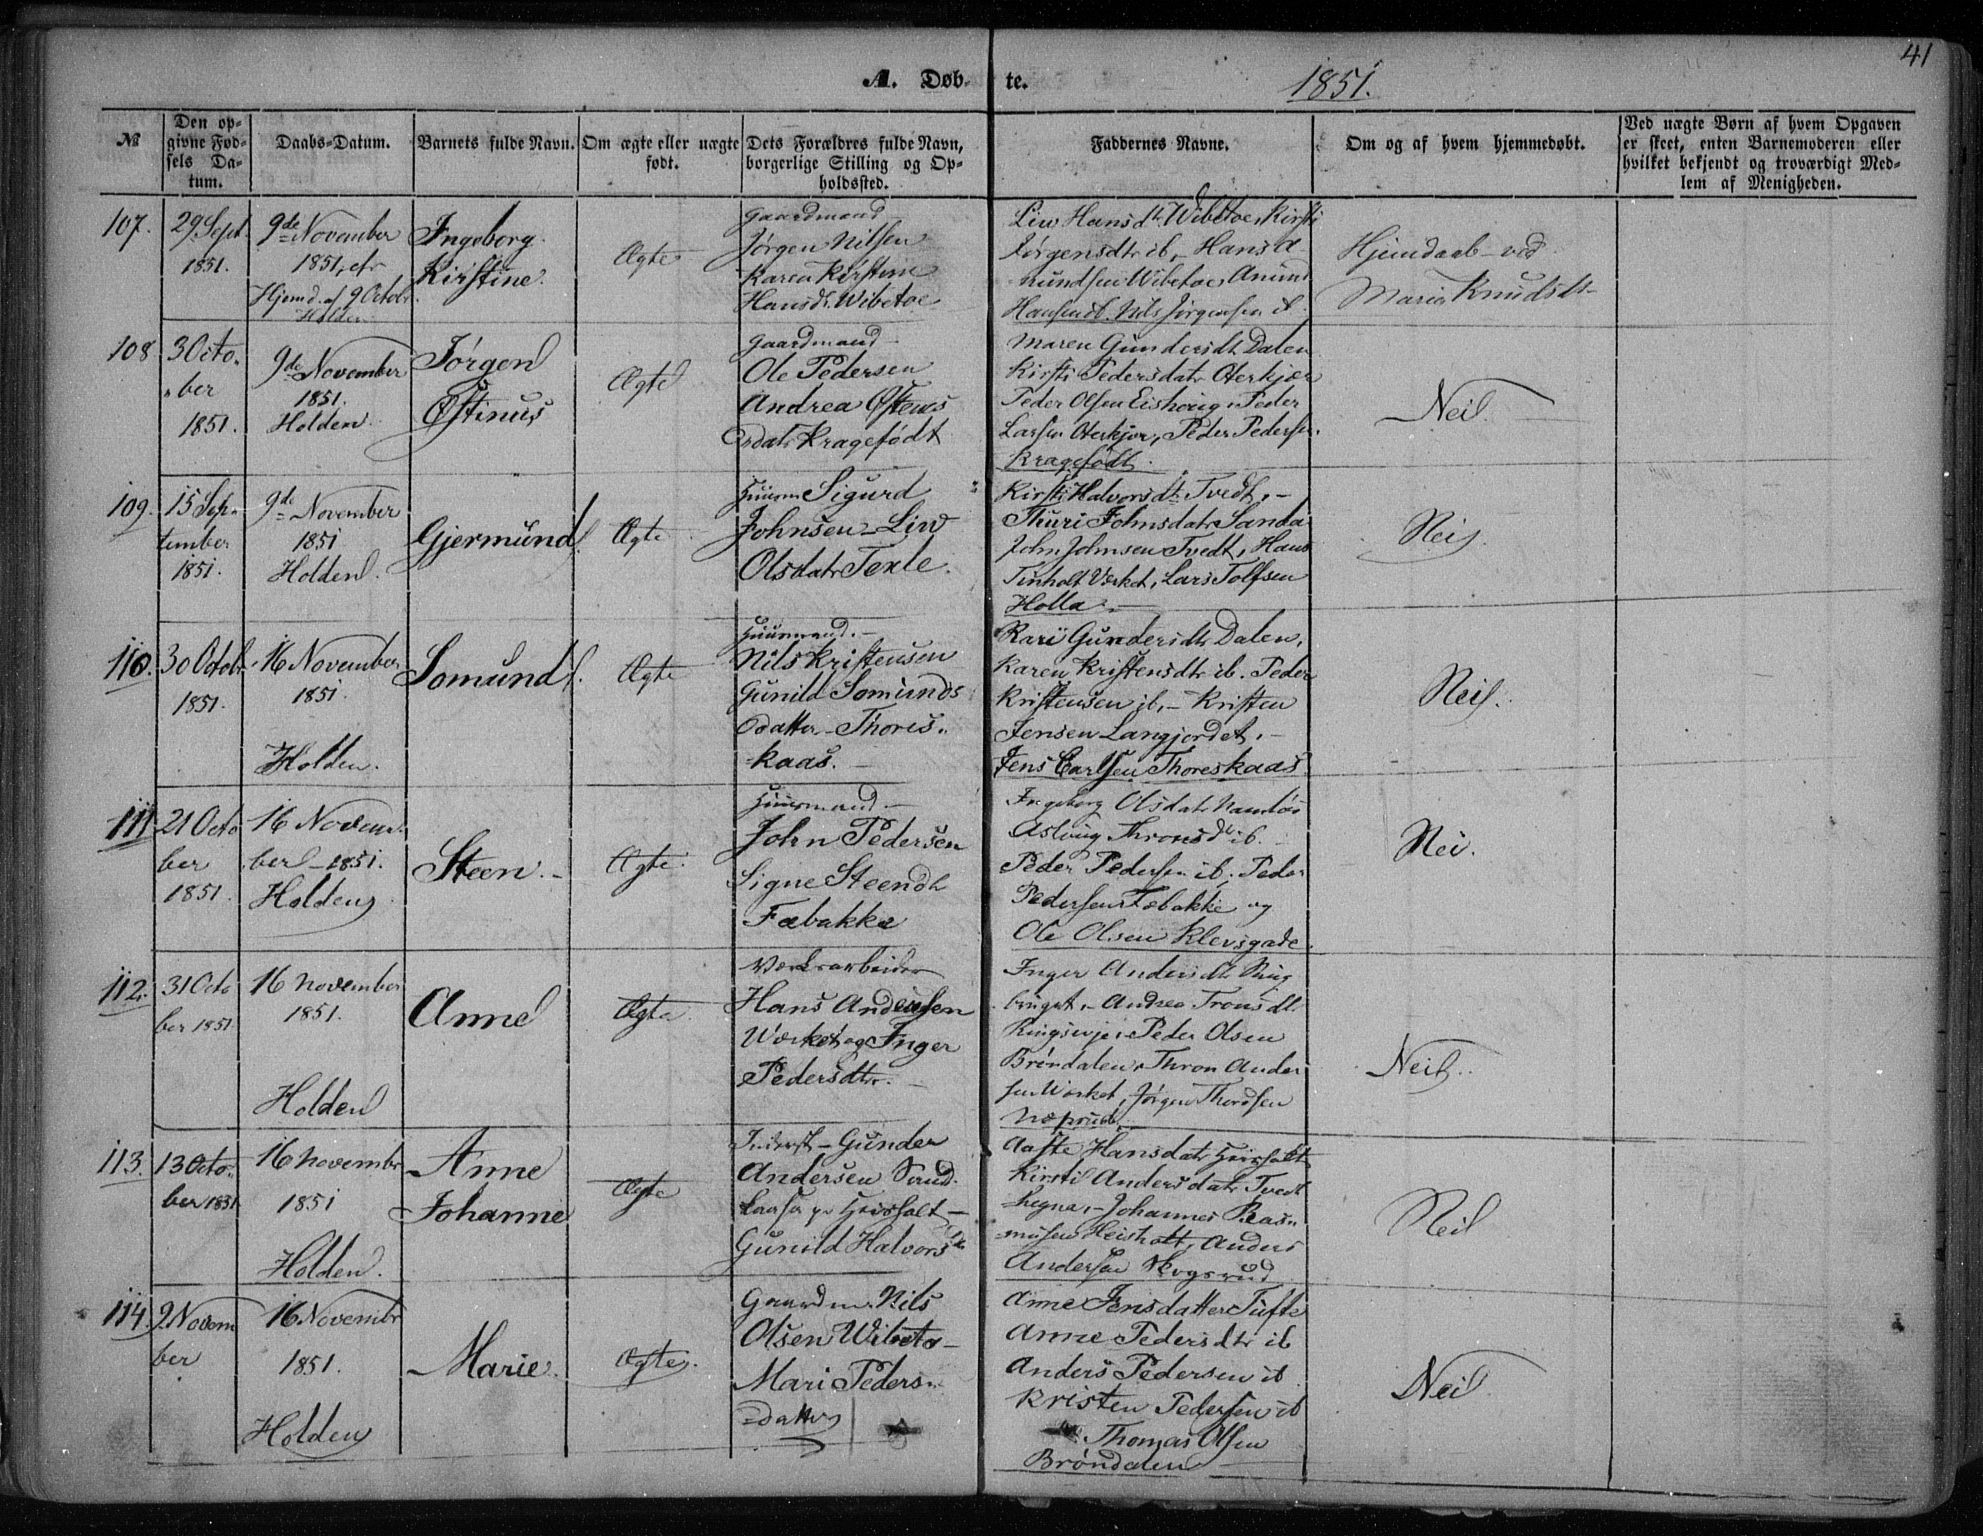 41
A. Døbte. 1851.
№
Den opgivne Fødsels Datum.
Daabs-Datum.
Barnets fulde Navn.
Om ægte eller uægte født.
Dets Forældres fulde Navn, borgerlige Stilling og Opholdssted.
Faddernes Navne.
Om og af hvem hjemmedøbt.
Ved uægte Børn af hvem Opgaven er skeet, enten Barnemoderen eller hvilket bekjendt og troværdigt Medlem af Menigheden.
107.
29 Sept
1851.
9de November
1851, efr
Hjemd. af 9 Octobr.
Holden
Ingeborg
Kirstine.
Ægte
Gaardmand
Jørgen Nilsen
Karen Kirstine
Hansdt. Wibetoe
Liv Hansdt. Wibetoe, Kirsti
Jørgensdtr ib, Hans A-
mundsen Wibetoe, Amund
Hansen ib. Nils Jørgensen ib
Hjemdaab ved
Maria Knudsdt
108
3 Octo-
ber
1851.
9de November
1851.
Holden
Jørgen
Østinus
Ægte
Gaardmand
Ole Pedersen
Andrea Østens
datr. Kragefødt
Maren Gundersdt Dalen
Kirsti Pedersdatr Oterkjær
Peder Olsen Eishoug, Peder
Larsen Oterkjær, Peder Pedersen
Kragefødt.
Nei.
109.
15 Sep-
tember
1851.
9de November
1851
Holden.
Gjermund
Ægte
Huusm Sigurd
Johnsen - Liv
Olsdatr Texle.
Kirsti Halvorsdt. Tvedt, -
Thuri Johnsdatr Landa
John Johnsen Tvedt, Hans
Tinholt Værket, Lars Tolfsen
Holla
Nei.
110.
30 Octobr
1851.
16 November
1851.
Holden.
Somund.
Ægte
Huusmand.
Nils Kristensen
Gunild Somunds
datter - Thores-
kaas.
Kari Gundersdtr Dalen,
Karen Kristensdtr ib. Peder
Kristensen ib, - Kristen
Jensen Langjordet. -
Jens Carlsen Thoreskaas
Nei.
111
21 Octo
ber
1851.
16 Novem-
ber - 1851.
Holden
Steen. -
Ægte.
Huusmand
John Pedersen
Signe Steendt.
Fæbakke
Ingeborg Olsdatr Namløs
Aslaug Thronsdt ib.
Peder Pedersen ib, Peder
Pedersen Fæbakke og
Ole Olsen Klevsgade.
Nei.
112.
31 Octo
ber 1851
16 November
1851.
Holden
Anne
Ægte
Værksarbeider
Hans Andersen
Værket og Inger
Pedersdtr.
Inger Andersdtr Ring
bruget, - Andrea Tronsdtr.
Ringsevje, Peder Olsen
Brøndalen, Thron Ander
sen Værket, Jørgen Thordsen
Næsrud.
Nei.
113.
13 Octo-
ber 1851
16 Novembr
1851
Holden.
Anne
Johanne
Ægte
Inderst - Gunder
Andersen Sand
kaasa pr Heisholt -
Gunild Halvorsdt
Aaste Hansdatr Heisholt
Kirsti Andersdatr Tvedt
hegna, - Johannes Ras-
musen Heisholt, Anders
Andersen Skogsrud
Nei
114.
2 Novem
ber
16 Novembr
1851.
Holden
Marie.
Ægte.
Gaardm. Nils
Olsen Wibeto -
Mari Peders-
datter
Anne Jensdatter Tufte
Anne Pedersdtr ib
Anders Pedersen ib
Kristen Pedersen ib
Thomas Olsen
Brøndalen
Nei